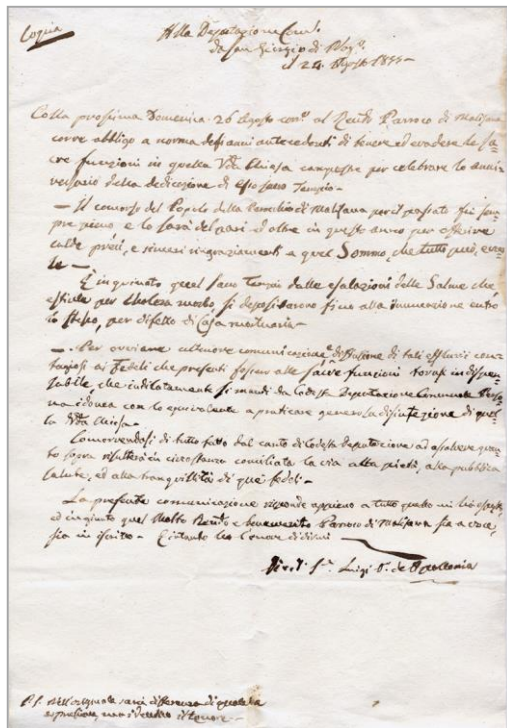 Copia
Alla Deputazione Com.le
da San Giorgio di Nog.o
il 24 Agosto 1855
Colla prossima Domenica 26 Agosto corr.e al Rendo Parroco di Malisana
corre obbligo a norma degli anni antecedenti di tenere ed evadere le sa=
cre funzioni in quella Chiesa campestre per celebrare lo anni=
versario della dedicazione di esso sacro Tempio.
— Il concorso del Popolo della Parrocchia di Malisana per il passato fu sem=
pre pieno e lo sarà del pari ed oltre in questo anno per offerire
calde preci, e sinceri ringraziamenti a quel Sommo, che tutto può, e vuo=
le —
È inquinato quel sacro Tempio dalle esalazioni delle Salme che
estinte per Cholera morbo, si depositarono fino alla inumazione entro
lo stesso, per difetto di Casa mortuaria.
— Per ovviare ulteriore comunicazione e diffusione di tali effluvi con=
tagiosi ai Fedeli che presenti fossero alle sacre funzioni torna indispen=
sabile, che indilatamente si mandi da Codesta Deputazione Comunale Perso=
na idonea con lo equivalente a praticare generosa disinfezione di quel=
la Chiesa.
di tutto fatto dal canto di Codesta Deputazione ad assolvere quan=
to sopra risulterà in circostanza conciliata la via alla pietà, alla pubblica
salute, ed alla tranquillità di que' fedeli.
La presente comunicazione risponde appieno a tutto quello mi ha
ed ingiunto quel Molto Rendo e benemerito Parroco di Malisana sia a voce
sia in iscritto. Ho l'onore di dirmi
Luigi D.r de
P.S. Nell'originale sarà differenza di qualche
espressione, ma identico il tenore.